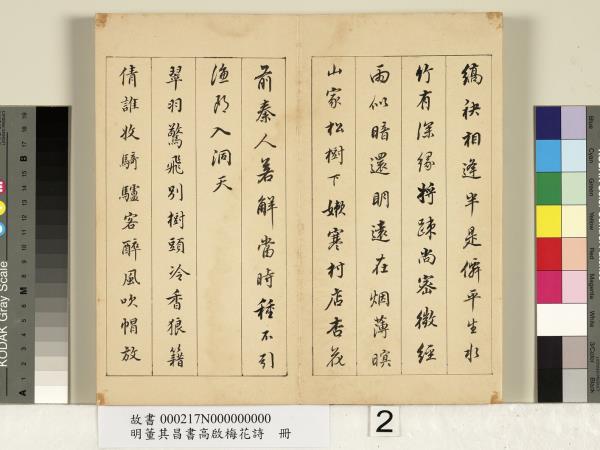 縞袂相逢半是僊平生水
竹有深緣將踈尚密微經
雨似暗還明遠在烟薄暝
山家松樹下嫩寒村店杏花
前秦人若解當時種不引
漁郎入洞天
翠羽驚飛別樹頭冷香狼籍
倩誰收騎驢客醉風吹帽放
故書 000217N000000000
明董其昌書高啟梅花詩 冊
2
KODAK Gray Scale
A
M
B
Blue
Cyan
Green
Yellow
Red
Magenta
White
3/Color
Black